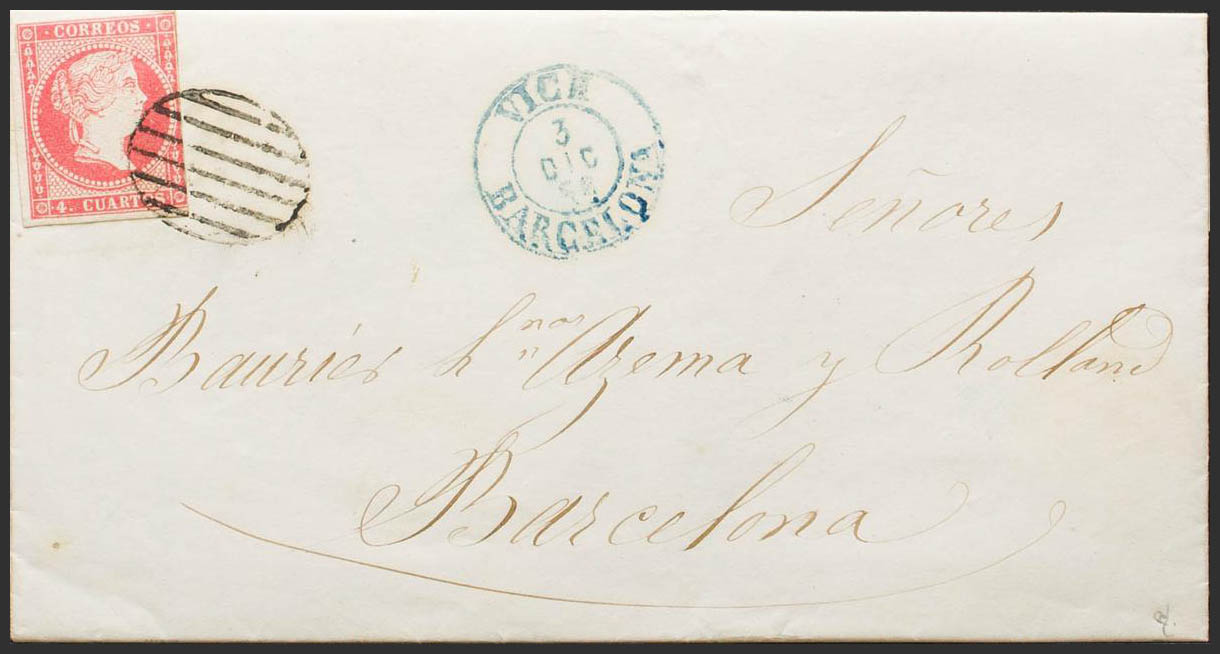 CORREOS
4. CUARTOS
VICH
3
DIC
BARCELONA
Señores
Bauriés h.nos Azema y Rolland
Barcelona